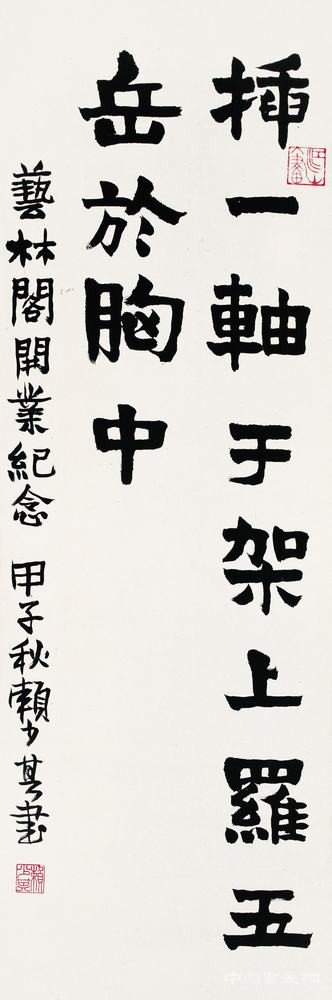 插一軸于架上羅五
岳於胸中
藝林閣開業紀念 甲子秋賴少其書